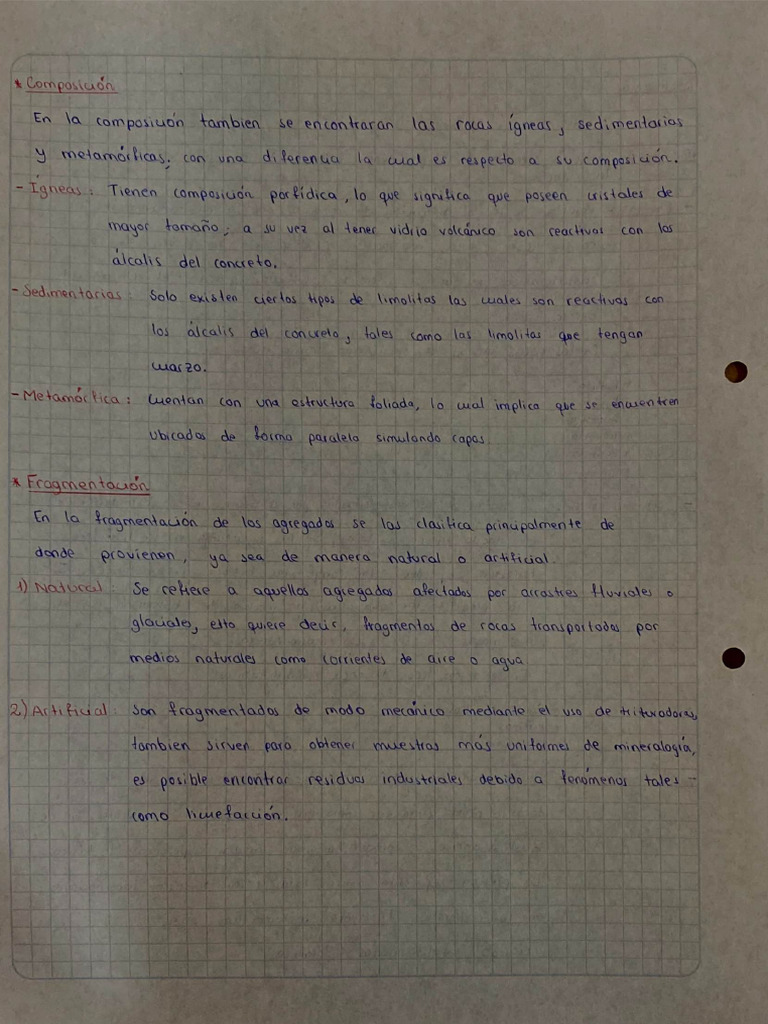 * Composición
En la composición tambien se encontraran las rocas ígneas, sedimentarias
y metamórficas, con una diferencia la cual es respecto a su composición.
- Ígneas: Tienen composición porfídica, lo que significa que poseen cristales de
mayor tamaño; a su vez al tener vidrio volcánico son reactivos con los
álcalis del concreto.
- Sedimentarias: Solo existen ciertos tipos de limolitas las cuales son reactivas con
los álcalis del concreto, tales como las limolitas que tengan
cuarzo.
- Metamórfica: Cuentan con una estructura foliada, lo cual implica que se encuentren
ubicados de forma paralela simulando capas
* Fragmentación
En la fragmentación de los agregados se las clasifica principalmente de
donde provienen, ya sea de manera natural o artificial
1) Natural: Se refiere a aquellos agregados afectados por arrastres fluviales o
glaciales, esto quiere decir, fragmentos de rocas transportados por
medios naturales como corrientes de aire o agua
2) Artificial: Son fragmentados de modo mecánico mediante el uso de trituradoras,
tambien sirven para obtener muestras más uniformes de mineralogía,
es posible encontrar residuos industriales debido a fenómenos tales
como licuefacción.